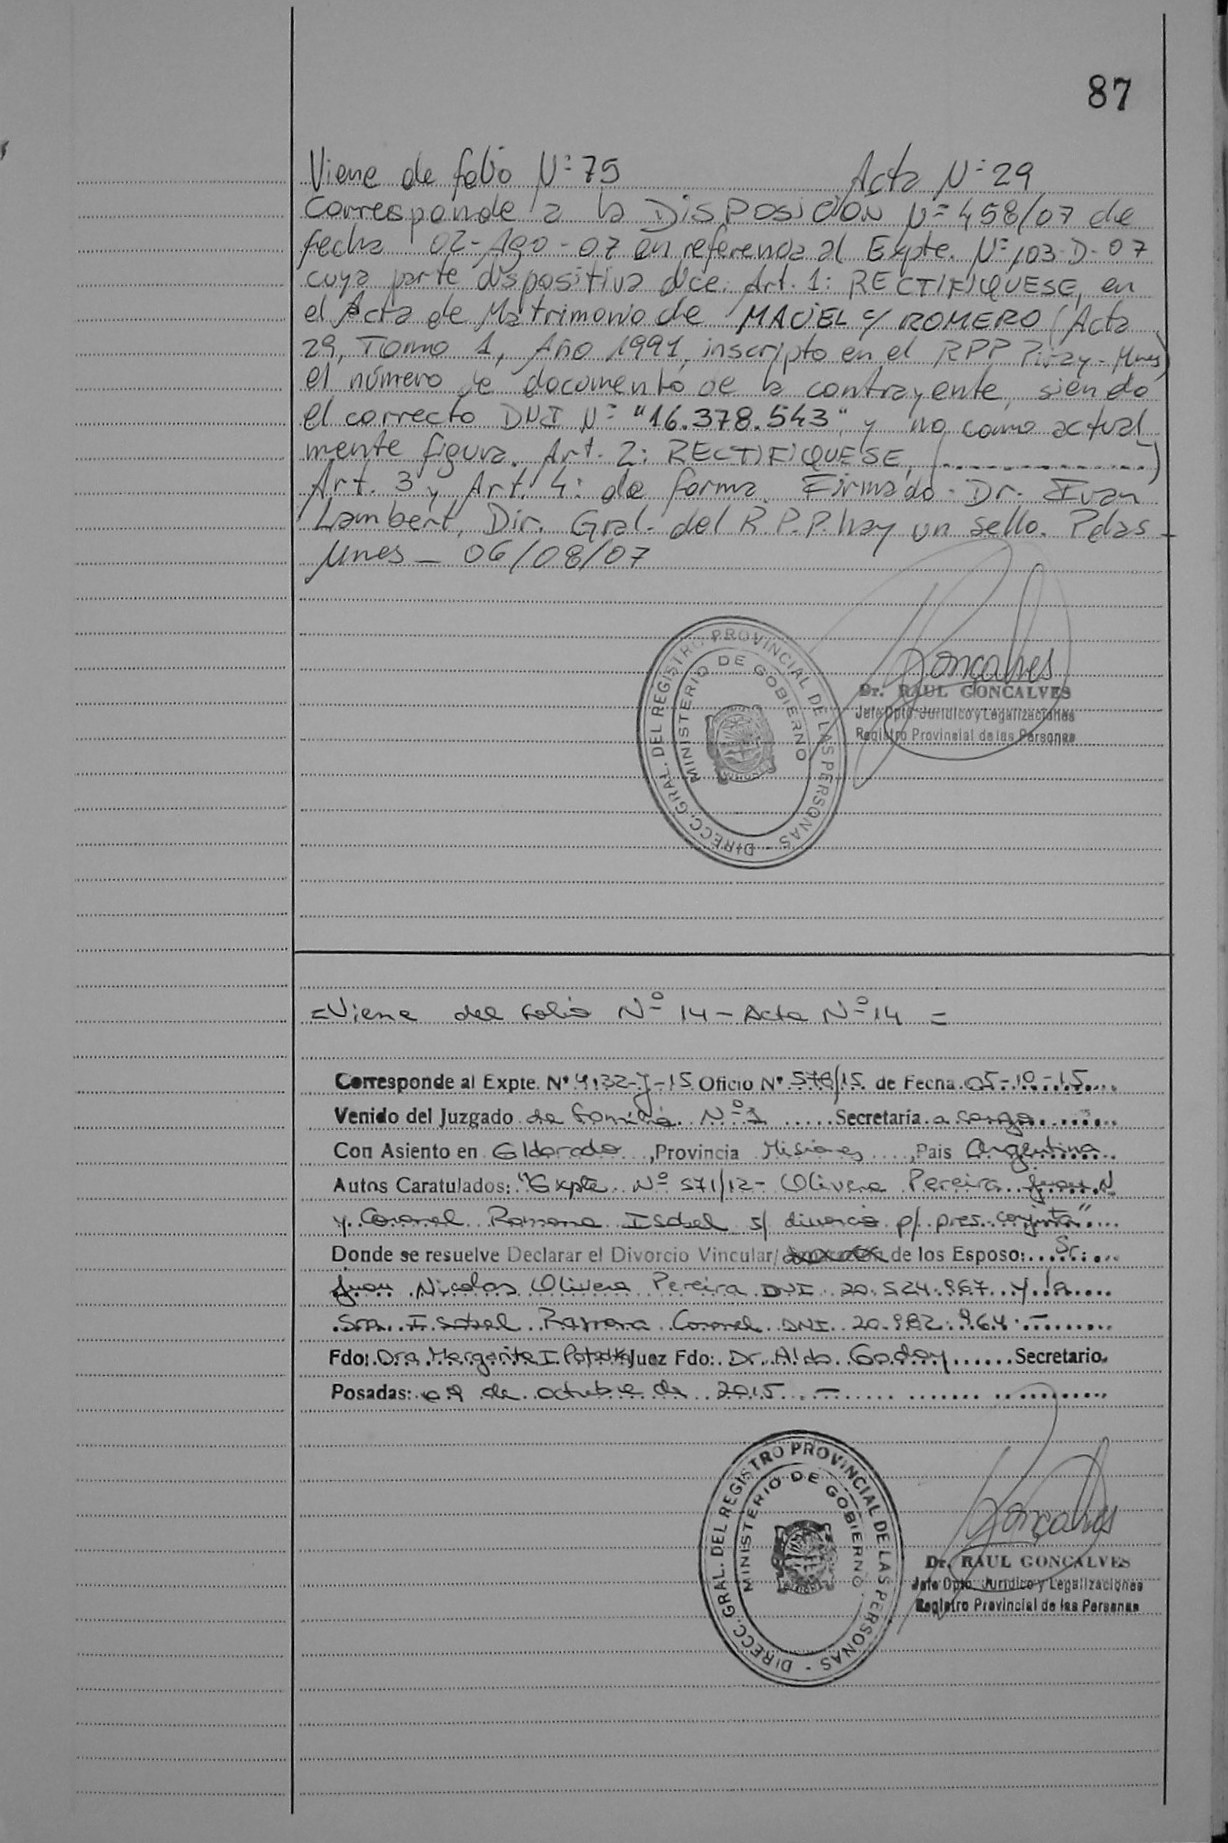 87
Viene de folio Nº 75 Acta Nº 29
Corresponde a la DISPOSICIÓN Nº 458/07 de
fecha 02-Ago-07 en referencia al Expte. Nº 103-D-07
cuya parte dispositiva dice: Art. 1: RECTIFIQUESE, en
el Acta de Matrimonio de MACIEL c/ ROMERO (Acta
29, Tomo 1, Año 1991, inscripto en el RPP Piray-Mnes)
el número de documento de la contrayente, siendo
el correcto DNI Nº "16.378.543" y no como actual
mente figura. Art. 2: RECTIFIQUESE, (..............)
Art. 3 y Art. 4: de forma. Firmado. Dr. Ivan
Lambert, Dir. Gral. del R.P.P. hay un sello. Pdas -
Mnes - 06/08/07
DIRECC. GRAL. DEL REGISTRO PROVINCIAL DE LAS PERSONAS -
MINISTERIO DE GOBIERNO
Goncalves
Dr. RAUL GONCALVES
Jefe Dpto. Jurídico y Legalizaciones
Registro Provincial de las Personas
= Viene del folio Nº 14 - Acta Nº 14 =
Corresponde al Expte. Nº 4132-J-15 Oficio Nº 576/15 de Fecha 05-10-15
Venido del Juzgado de familia Nº 1 Secretaría a cargo
Con Asiento en Eldorado, Provincia Misiones, País Argentina
Autos Caratulados: "Expte Nº 571/12 - Olivera Pereira Juan N
y Coronel Ramona Isabel s/ divorcio p/ pres. conjunta"
Donde se resuelve Declarar el Divorcio Vincular/ de los Esposo: Sr.
Juan Nicolas Olivera Pereira DNI 20.524.967 y la
Sra. Isabel Ramona Coronel DNI 20.982.964 -
Fdo: Dra Margarita I Juez Fdo: Dr. Aldo Godoy Secretario.
Posadas: 09 de octubre de 2015 -
DIRECC. GRAL. DEL REGISTRO PROVINCIAL DE LAS PERSONAS -
MINISTERIO DE GOBIERNO
Goncalves
Dr. RAUL GONCALVES
Jefe Dpto. Jurídico y Legalizaciones
Registro Provincial de las Personas